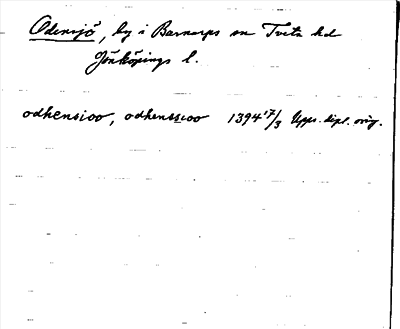 Odensjö, by i Barnarps sn Tveta hd
Jönköpings l.
odhensioo, odhenssioo 1394 17/3 Upps. dipl. orig.